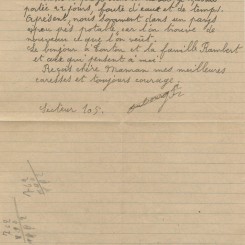 portée 22 jours, faute d'eau et de temps.
Aprésent, nous sommes dans un pays
peu potable, car l'on trouve de
ce que l'on veut.
Le bonjour à Tonton et la famille Rambert
et ceux qui pensent à moi.
Reçois chère Maman mes meilleures
caresses et toujours courage.
Secteur 105.